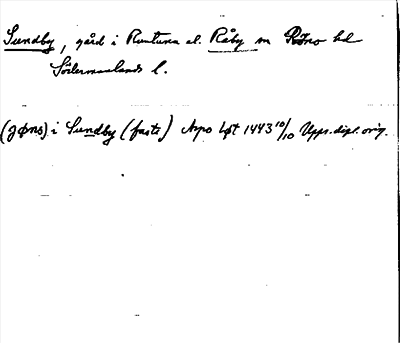 Sundby, gård i Runtuna el. Råby sn Rönö hd
Södermanlands l.
(Jøns) i Sundby (faste) Nypo Løt 1443 10/10 Upps. dipl. orig.